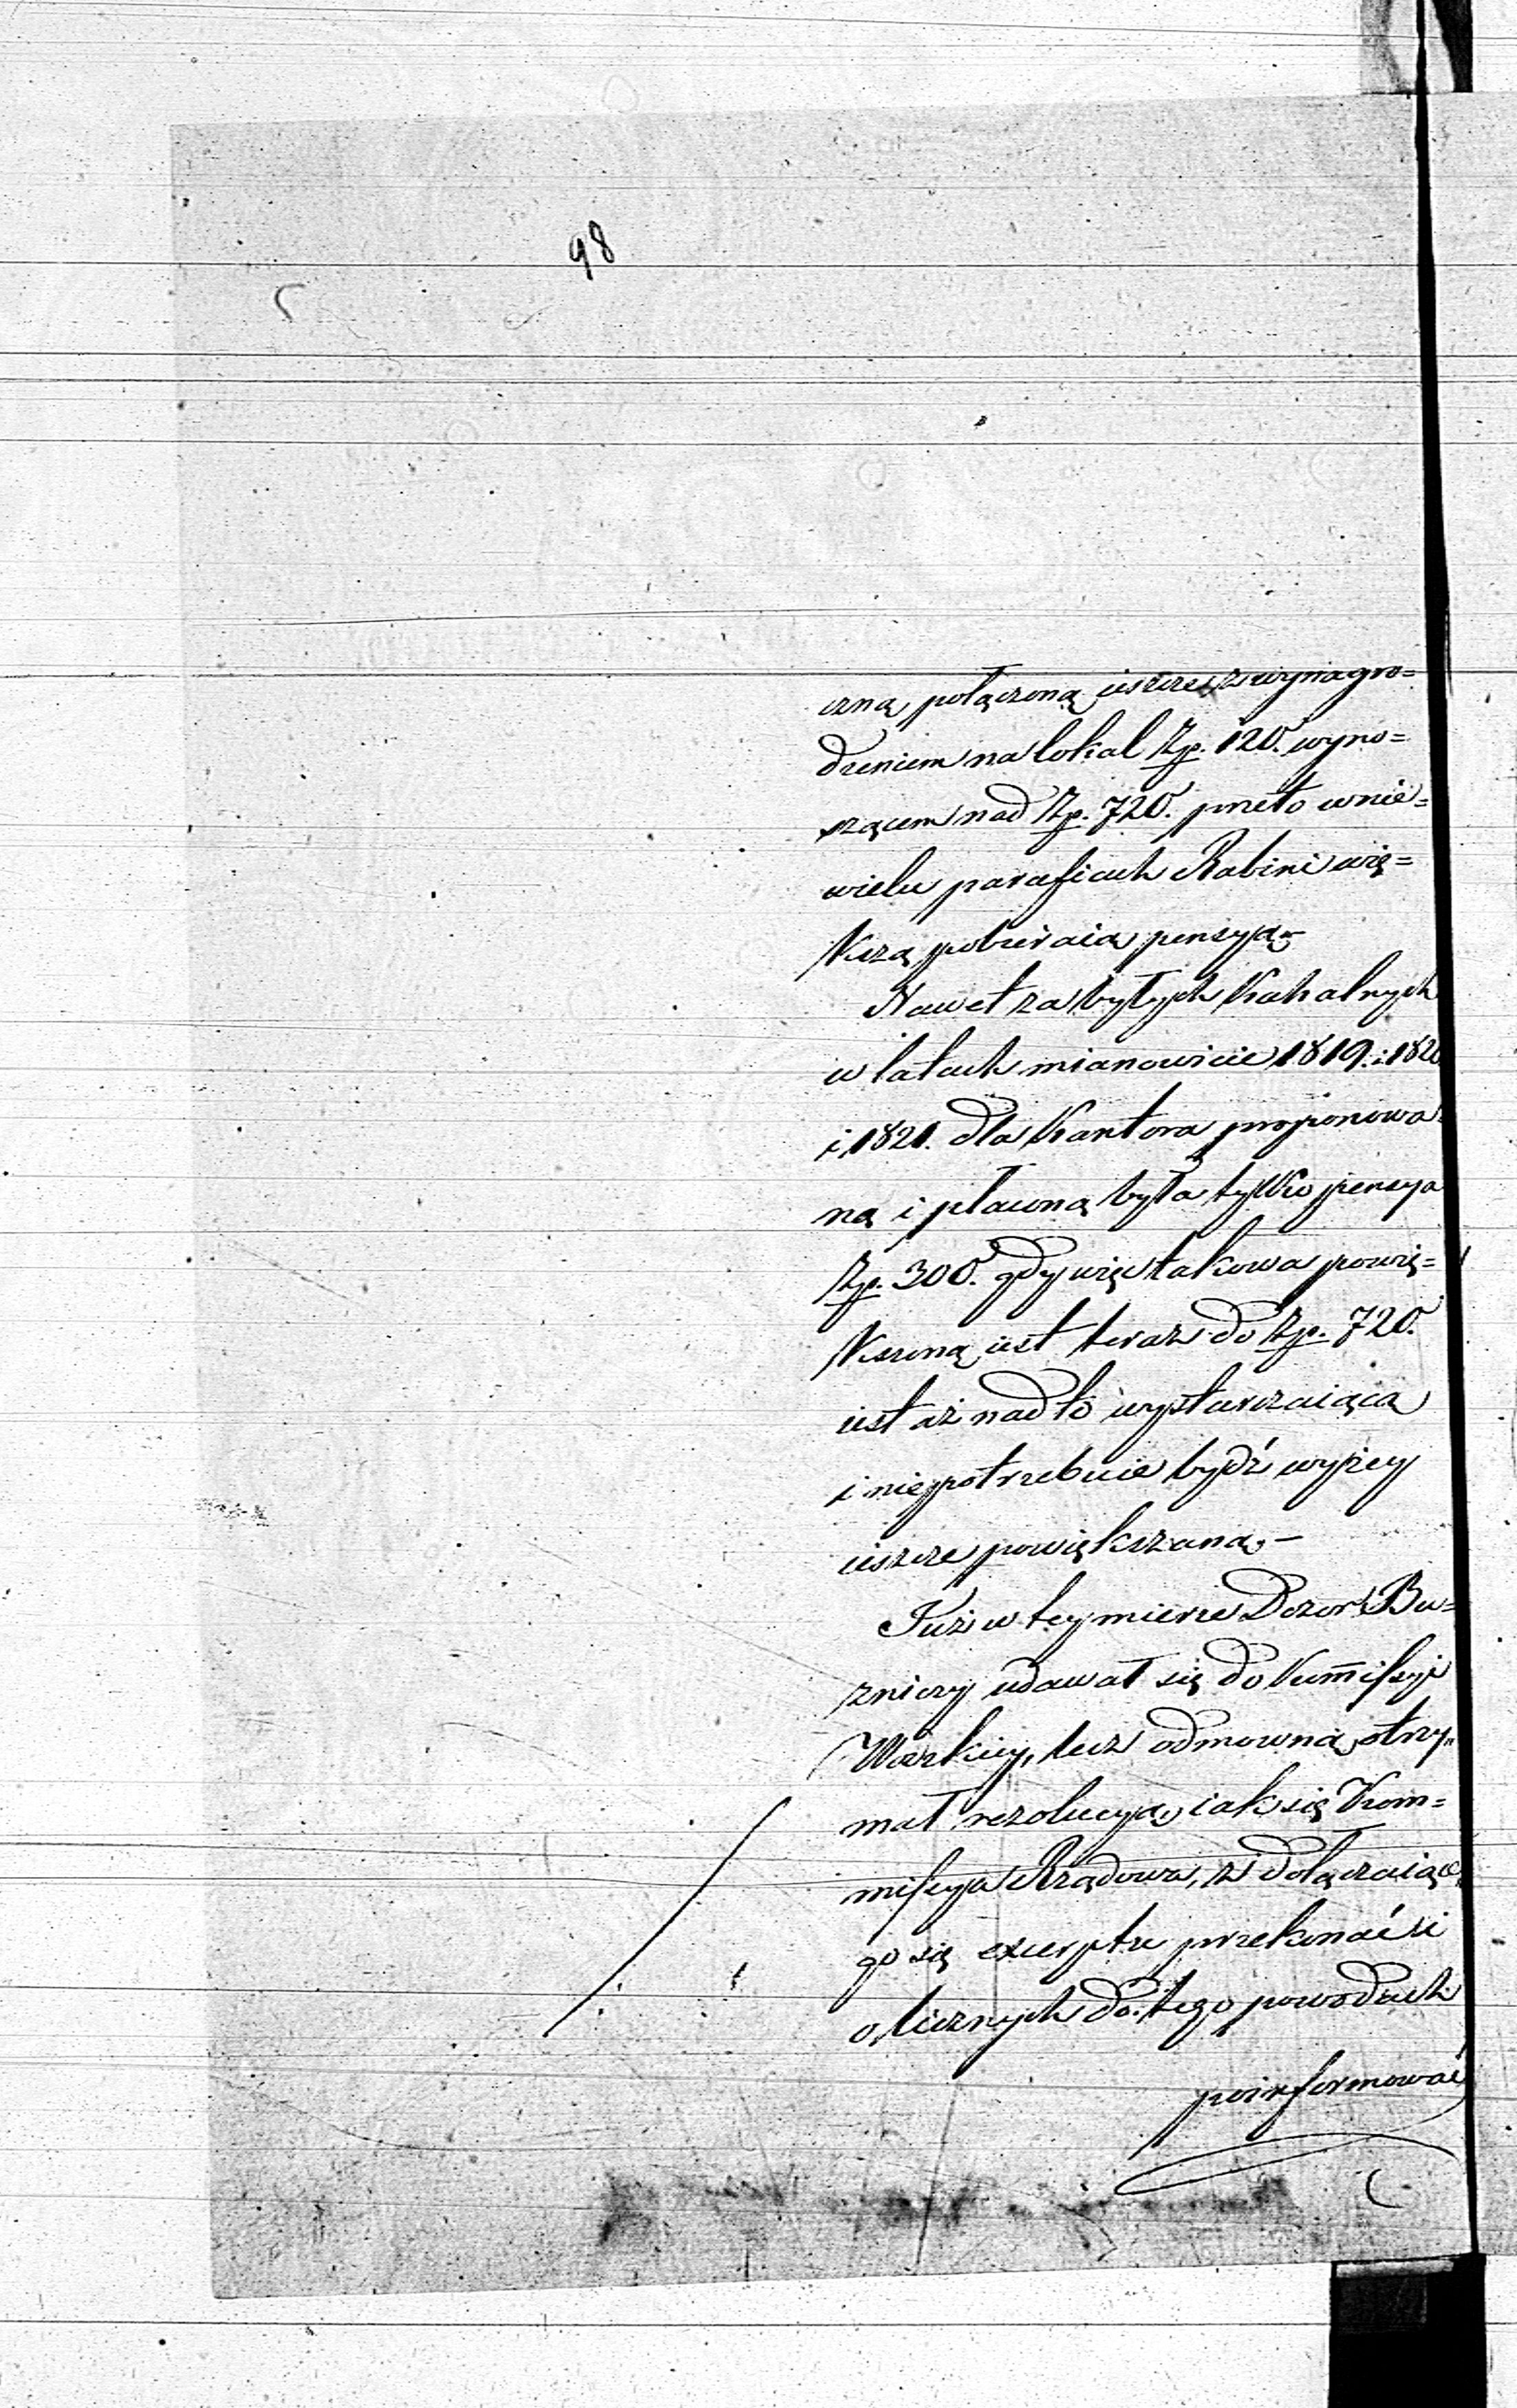 98
czną połączoną ieszcze z wynagro=
dzeniem na lokal Zp. 120. wyno=
szącem nad Zp. 720. przeto w nie=
wielu parafiach Rabini wię=
kszą pobieraią pensyą.-
Nawet za byłych Kahalnych
w latach mianowicie 1819. i 1820
i 1821. dla Kantora proponowa=
ną i płaconą była tylko pensya
Zp. 300. gdy więc takowa powię=
kszoną iest teraz do Zp. 720.
iest aż nadto wystarczaiąca
i niepotrzebuie bydź wyżey
ieszcze powiększaną.-
Już w tey mierze Dozor Bu=
żniczy udawał się do Kom̄isyi
Wdzkiey, lecz odmowną otrzy„
mał rezolucyą, iak się Kom=
missya Rządowa, z dołączaiące
go się excerptu przekonać i
o licznych do tego powodach
poinformować